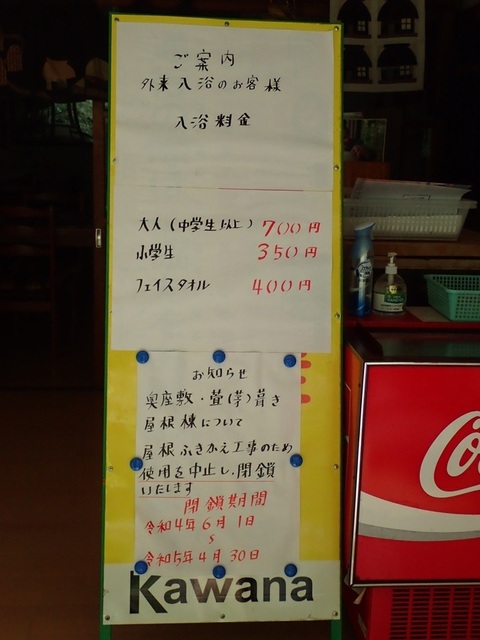 ご案内
外来入浴のお客様
入浴料金
大人(中学生以上) 700円
小学生 350円
フェイスタオル 400円
お知らせ
奥座敷・萱(茅)葺き
屋根棟について
屋根ふきかえ工事のため
使用を中止し、閉鎖
いたします
閉鎖期間
令和4年6月1日
〜
令和5年4月30日
Kawana